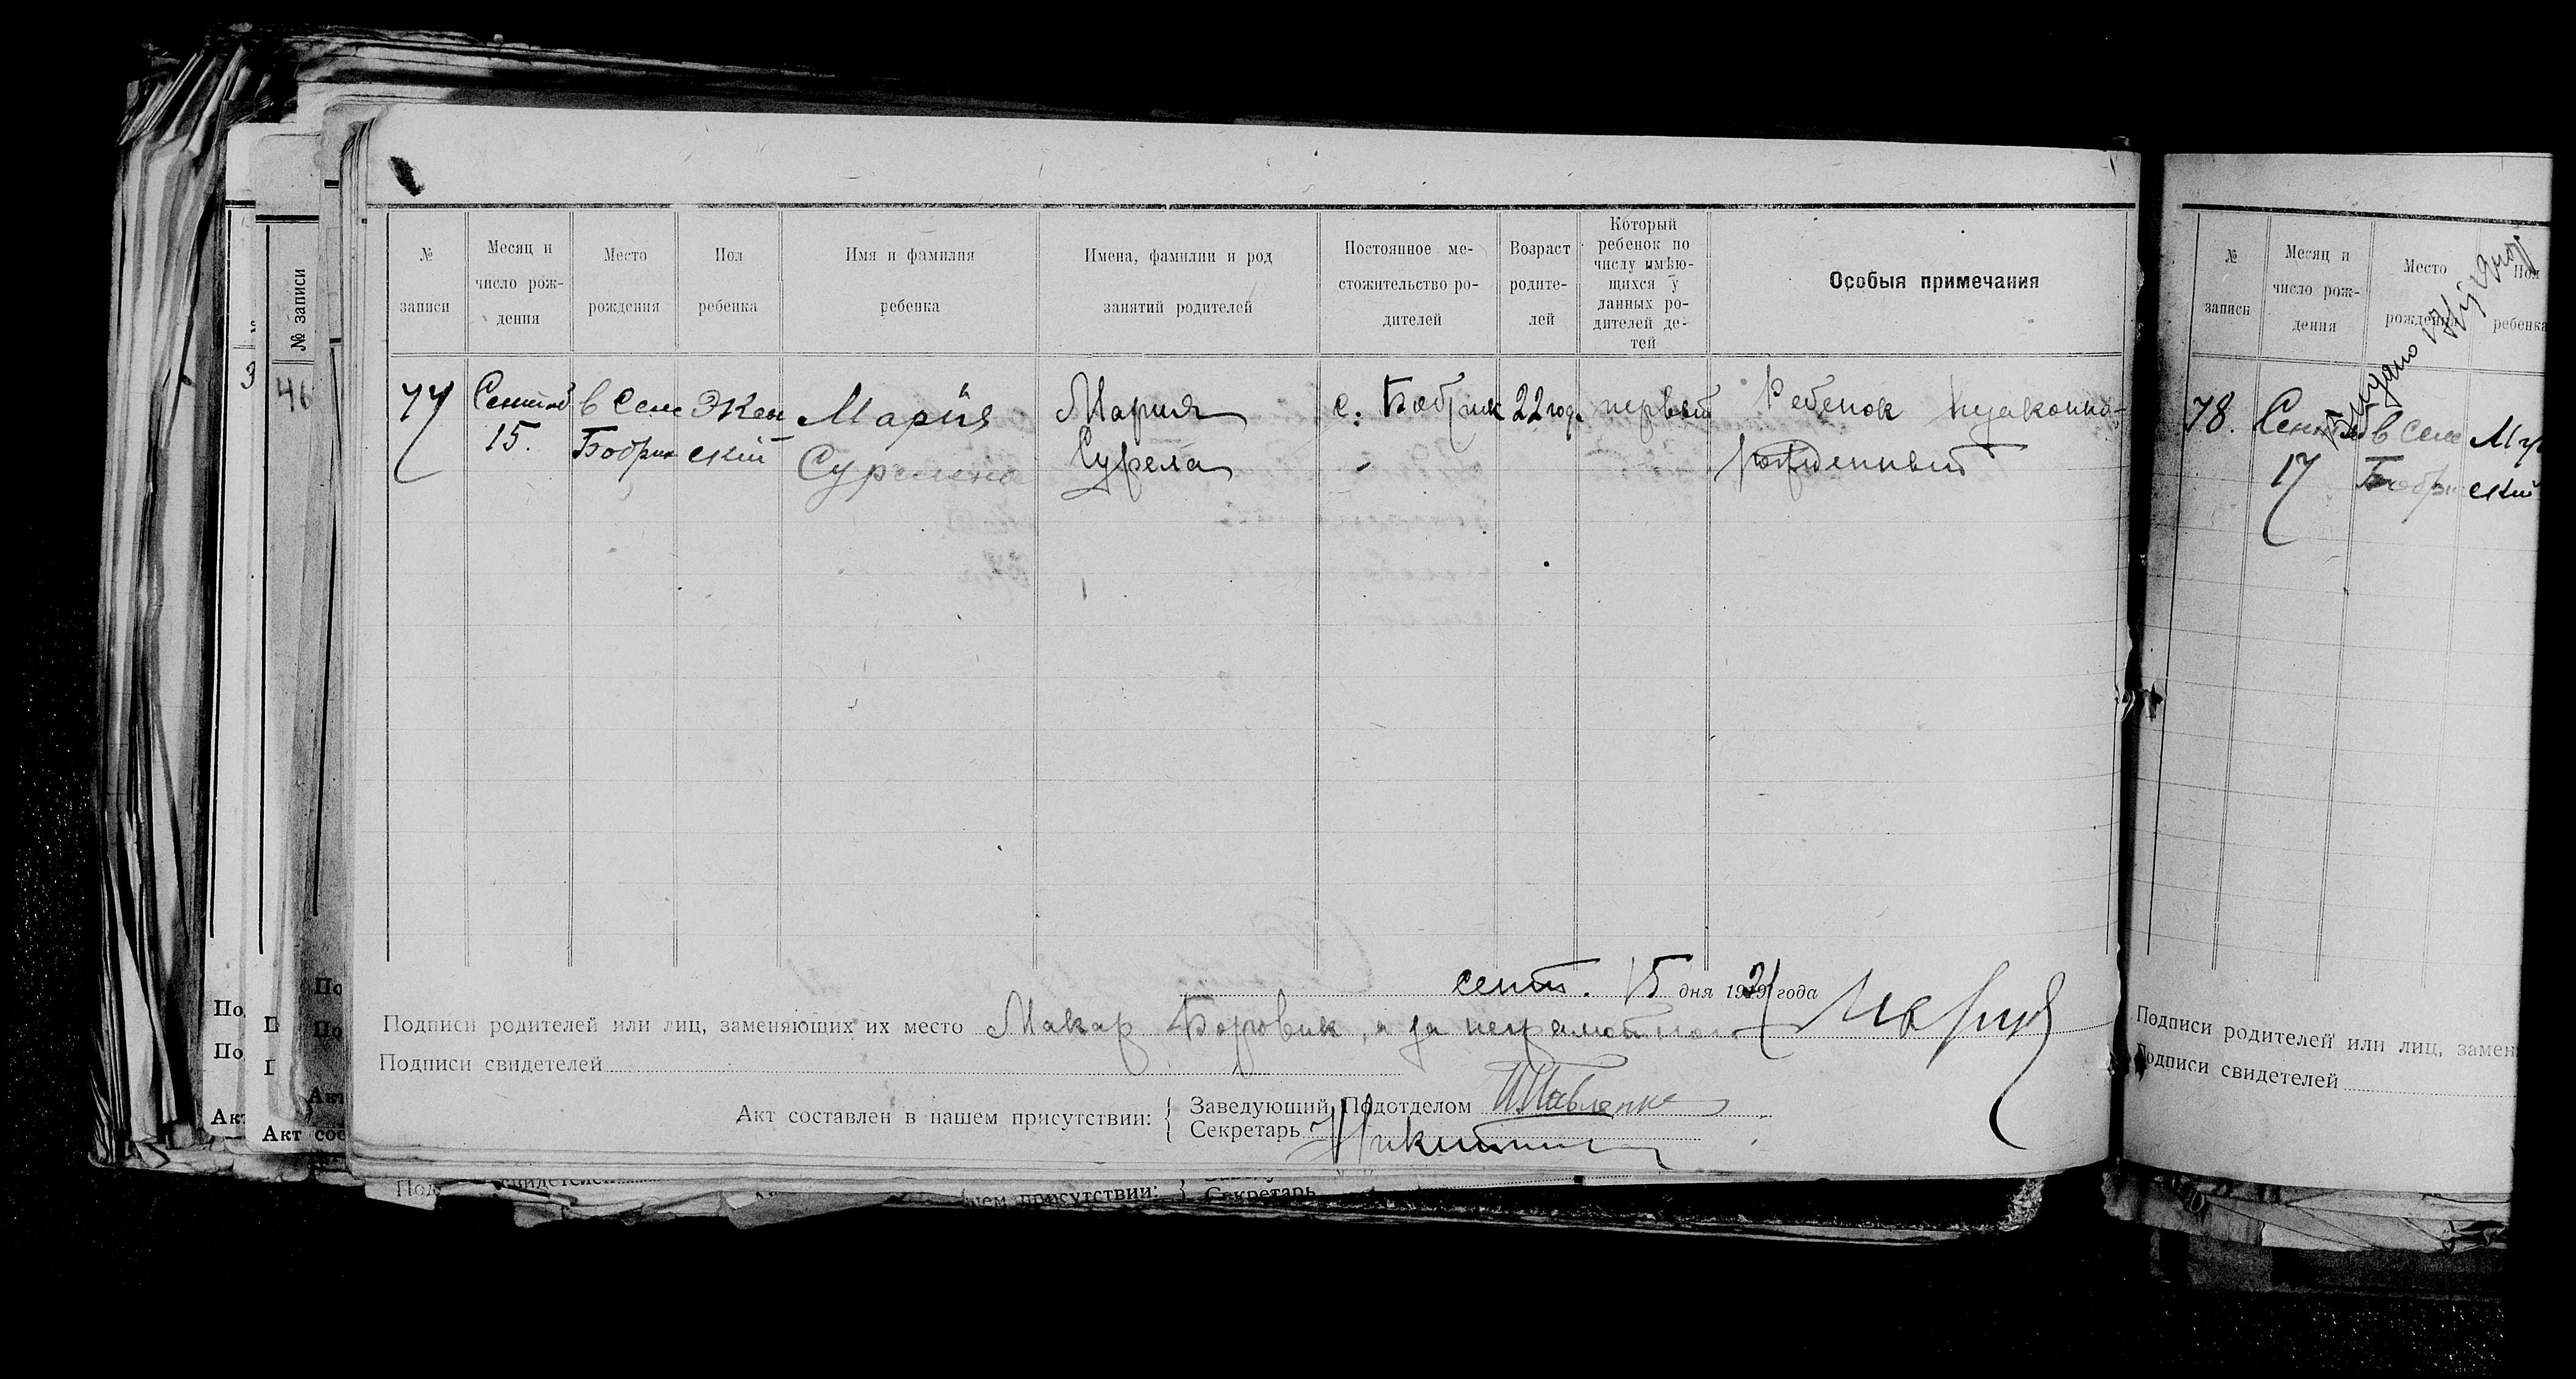 № записи
Месяц и число рождения
Место рождения
Пол ребенка
Имя и фамилия ребенка
Имена, фамилии и род занятий родителей
Постоянное местожительство родителей
Возраст родителей
Который ребенок по числу имѣющихся у данных родителей детей
Особыя примечания
77 Сентяб в Селе Жен Мария Мария с. Бобрик 22 год. первый Ребенок незаконно-
15. Бобрик ский рожденный
сент. 15 дня 1921 года
Подписи родителей или лиц, заменяющих их место Макар Боровик, а за неграмотного
Подписи свидетелей
Акт составлен в нашем присутствии:
Заведующий Подотделом
Секретарь Никитин
№ записи
Месяц и число рождения
Место рождения
Пол ребенка
78. в Селе Му
17 Бобри ский
Подписи родителей или лиц, замен
Подписи свидетелей
№ записи
46
Акт сос